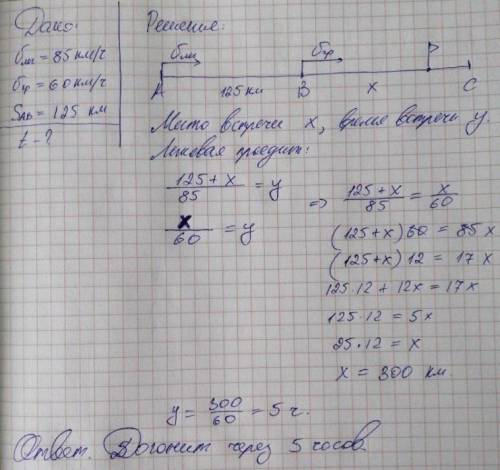 Дано:
Решение:
v лег = 85 км/ч
v гр = 60 км/ч
S AB = 125 км
t - ?
v лег
v гр
P
A
125 км
B
x
C
Место встречи x, время встречи y.
Легковая проедит:
(125 + x)/85 = y
x/60 = y
=> (125 + x)/85 = x/60
(125 + x) 60 = 85 x
(125 + x) 12 = 17 x
125·12 + 12x = 17x
125·12 = 5x
25·12 = x
x = 300 км.
y = 300/60 = 5 ч.
Ответ. Догонит через 5 часов.